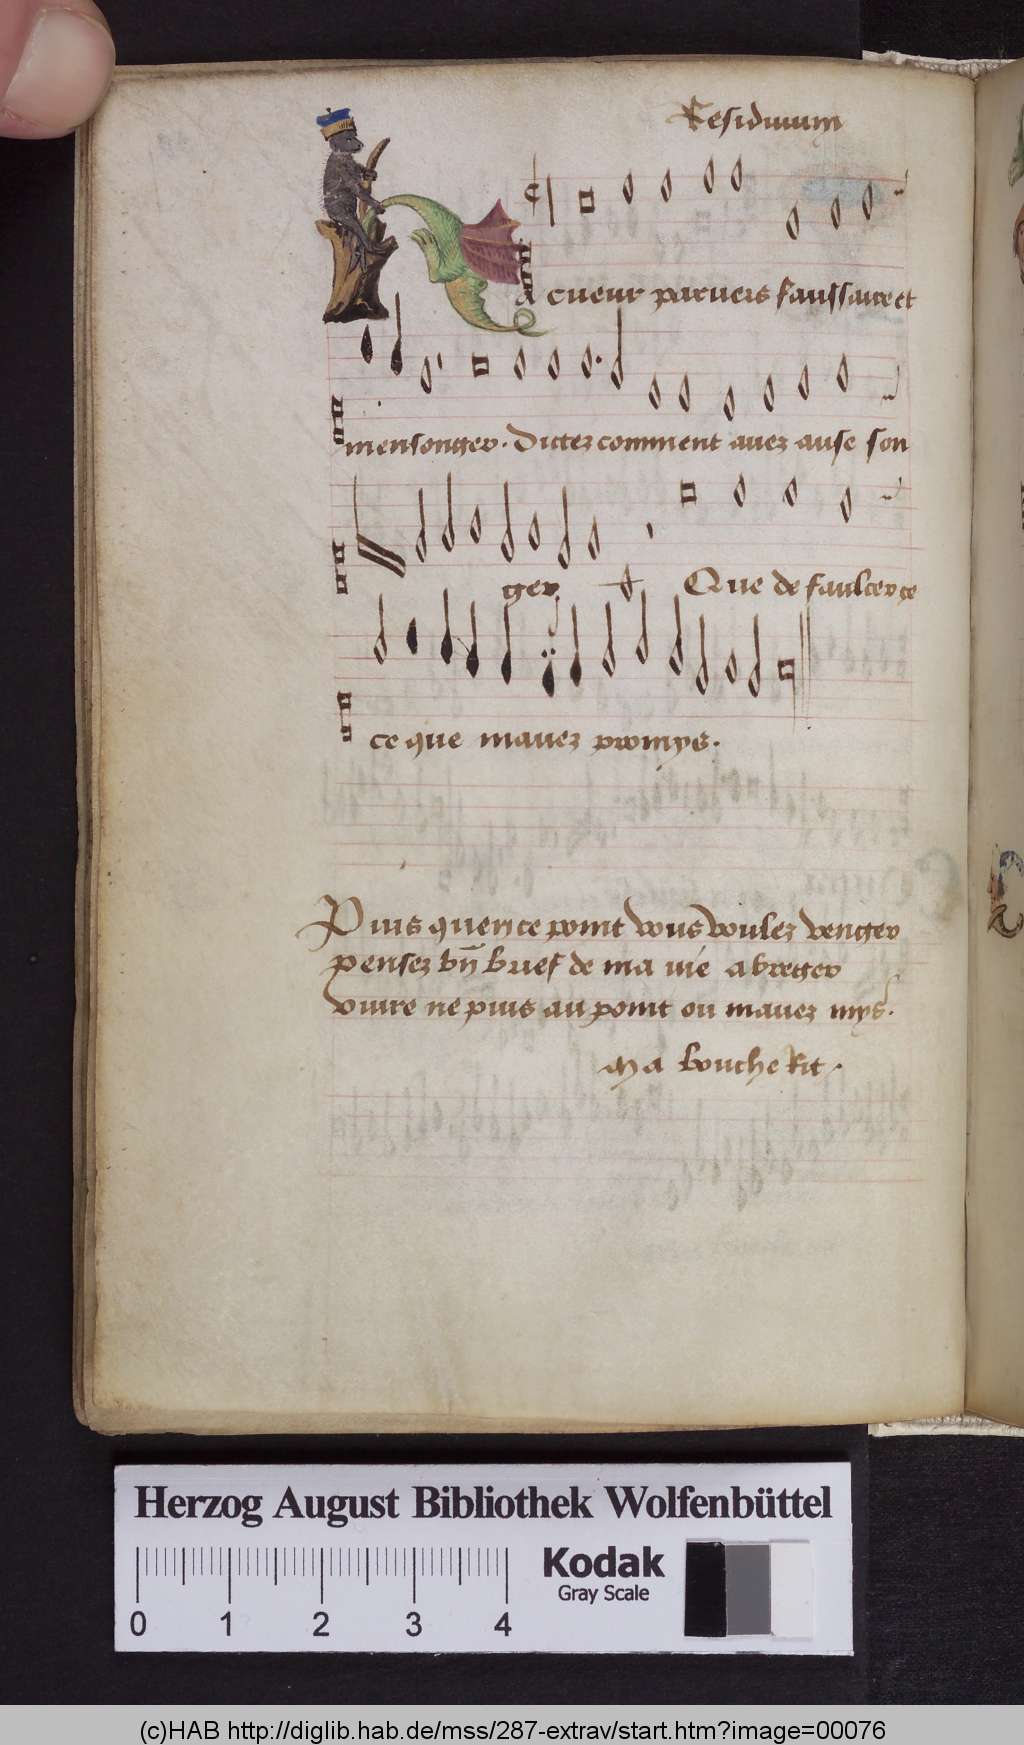 Residuum
A cueur parvers faulssaire et
mensonger. Dictez comment avez ause son
ger Que de faulcer ce
ce que mavez promys.
Puis quen ce point vous voulez venger
pensez bn̄ brief de ma vie abreger
vivre ne puis au point ou mavez mys.
Ma bouche Rit.
Herzog August Bibliothek Wolfenbüttel
0 1 2 3 4
Kodak
Gray Scale
(c)HAB http://diglib.hab.de/mss/287-extrav/start.htm?image=00076